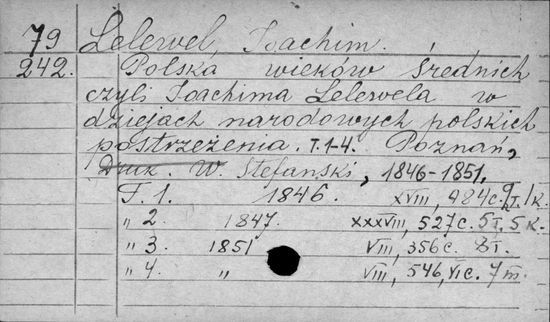 79 Lelewel, Joachim.
242. Polska wieków średnich
czyli Joachima Lelewela w
dziejach narodowych polskich
postrzeżenia. T. 1-4. Poznań,
Druk. W. Stefański, 1846-1851.
T. 1. 1846. XVIII, 484 c. 9 T. 1 K.
" 2. 1847. XXXVIII, 527 c. 5 T. 5 K.
" 3. 1851 VIII, 356 c. 8 T.
" 4. " VIII, 546, VI c. 7 m.